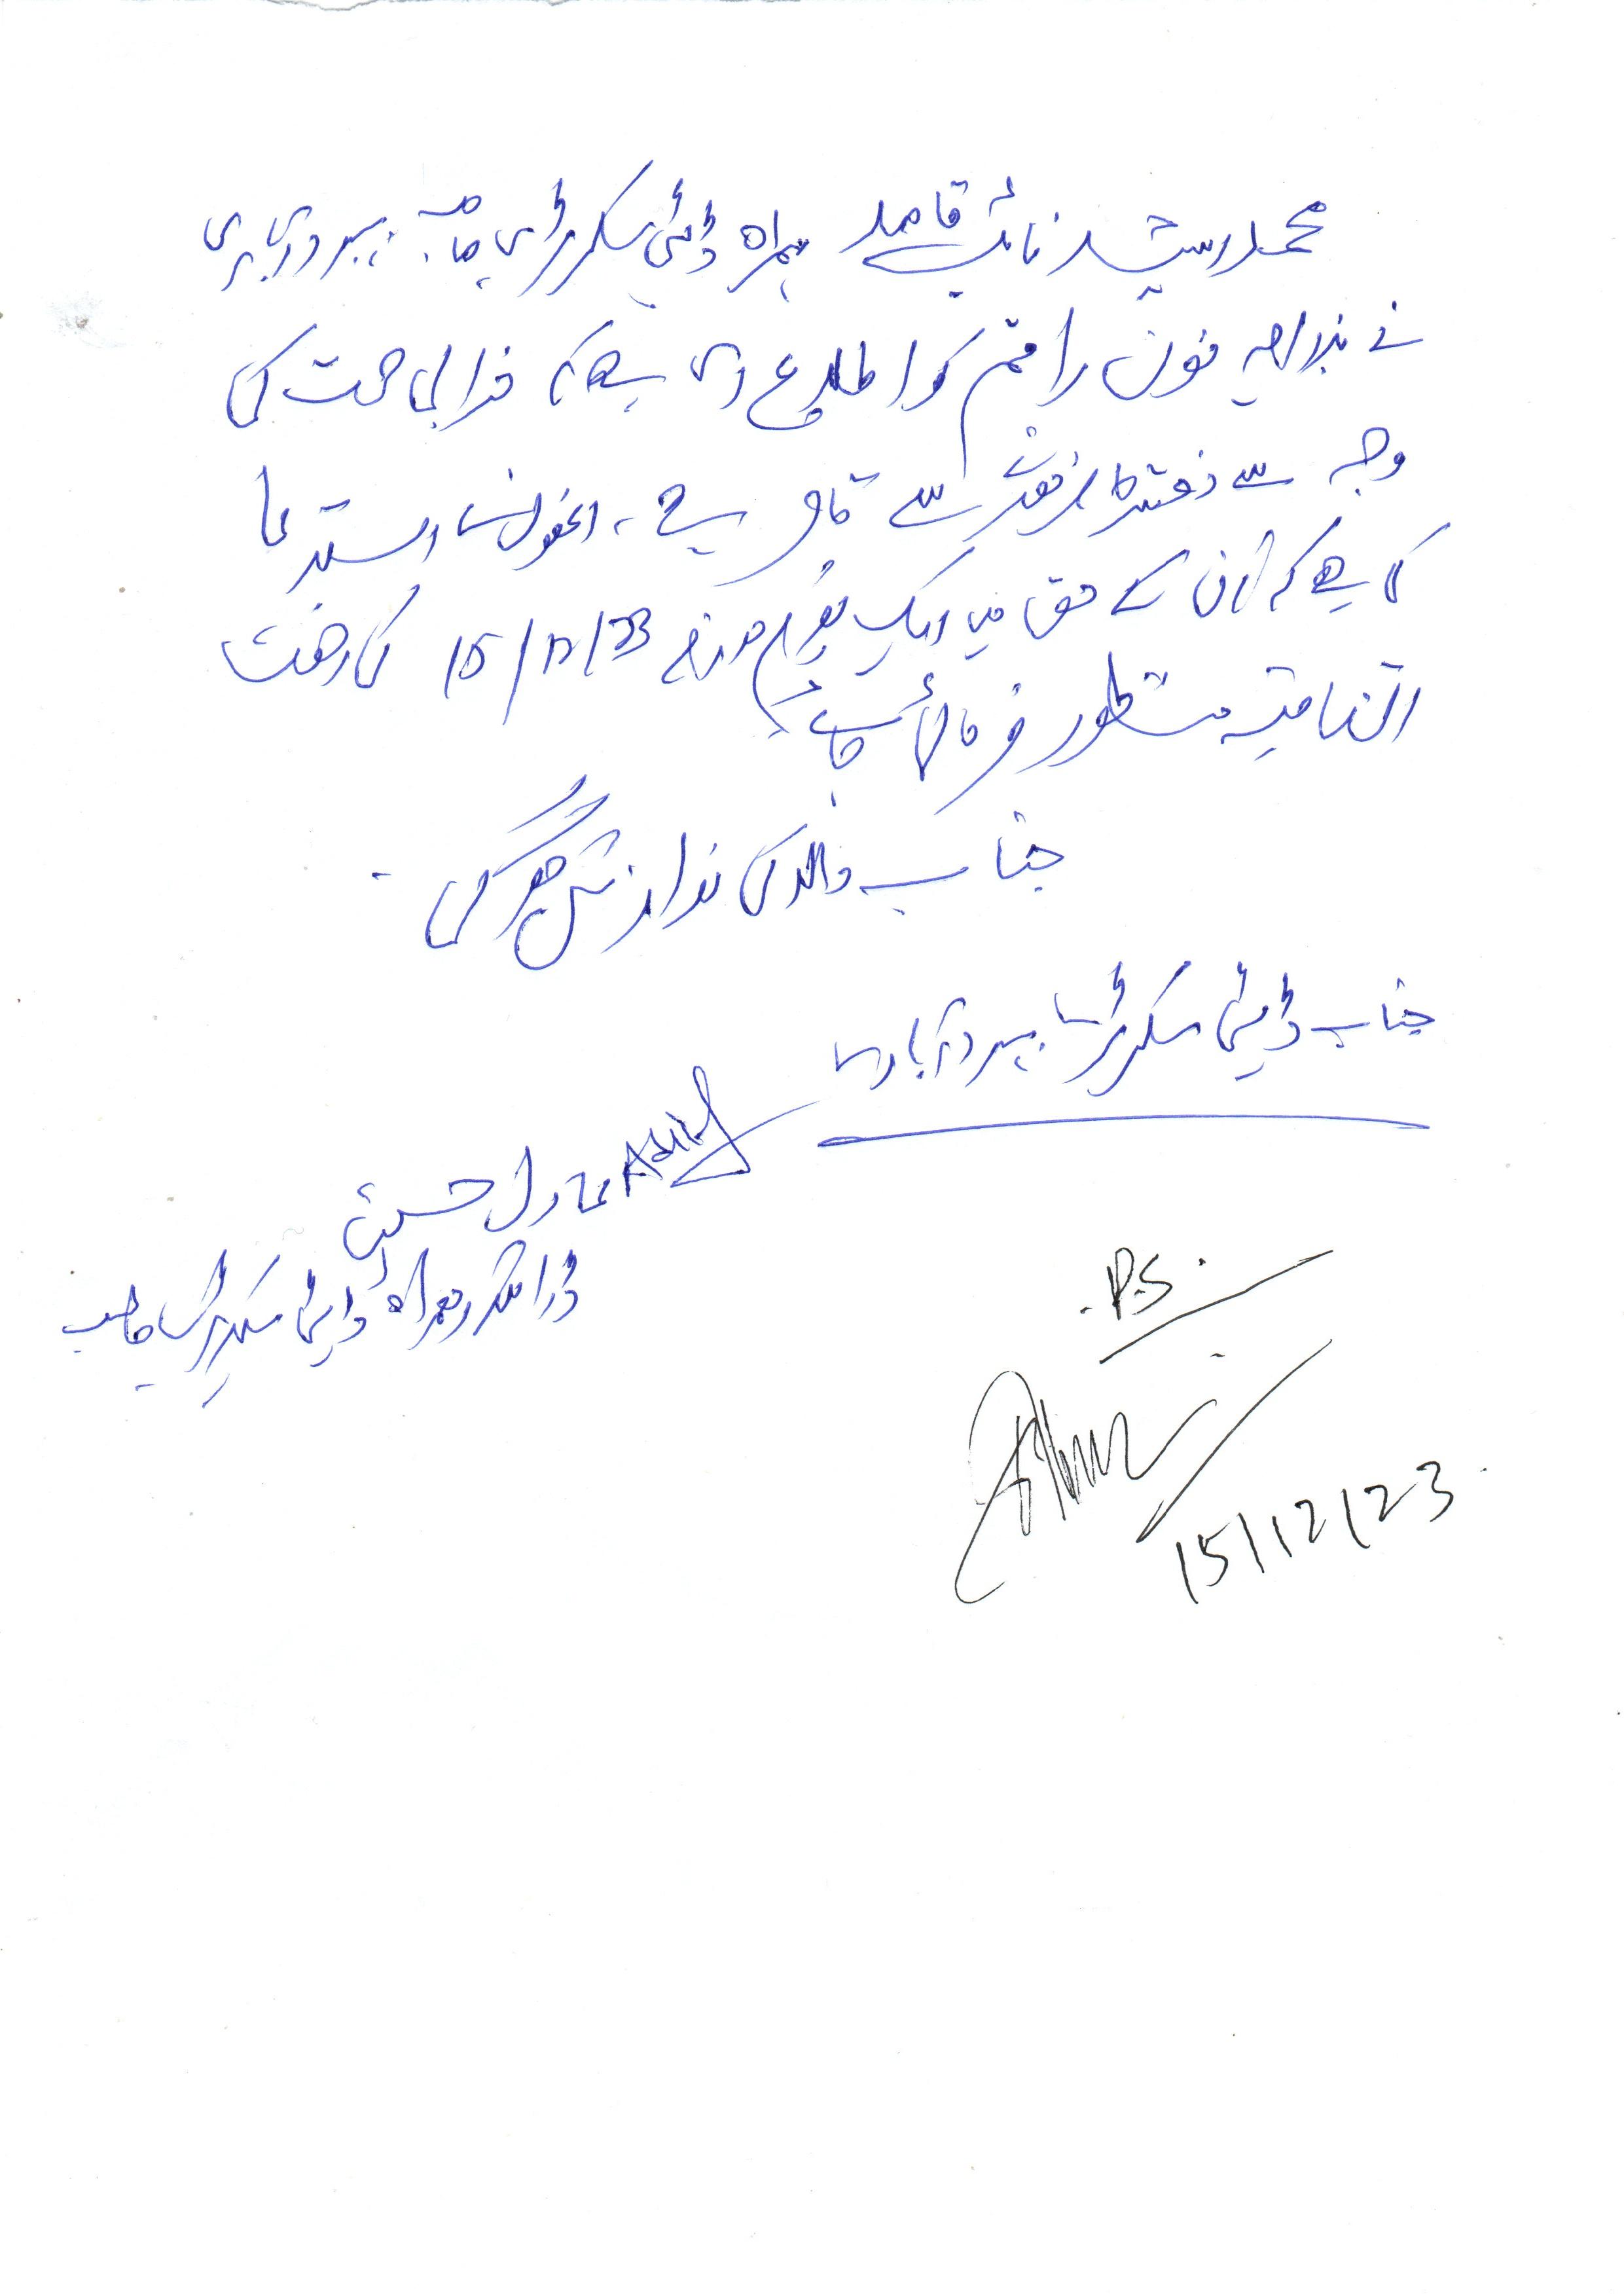 محمد رشید نائب قاصد ہمراہ ڈپٹی سکریٹری صاحب
نے بذریعہ فون راقم کو اطلاع دی ہے کہ خرابی صحت کی
وجہ سے دفتر حاضر ہونے سے قاصر ہے، انھوں نے استدعا
کی ہے کہ ان کے حق میں ایک یوم مورخہ 15/12/23 کی رخصت
اتفاقیہ منظور فرمائی جائے
جناب والا کی نوازش ہوگی۔
جناب ڈپٹی سکریٹری
Adil
عادل حسین
ڈرائیور ہمراہ ڈپٹی سکریٹری صاحب
P.S.
15/12/23